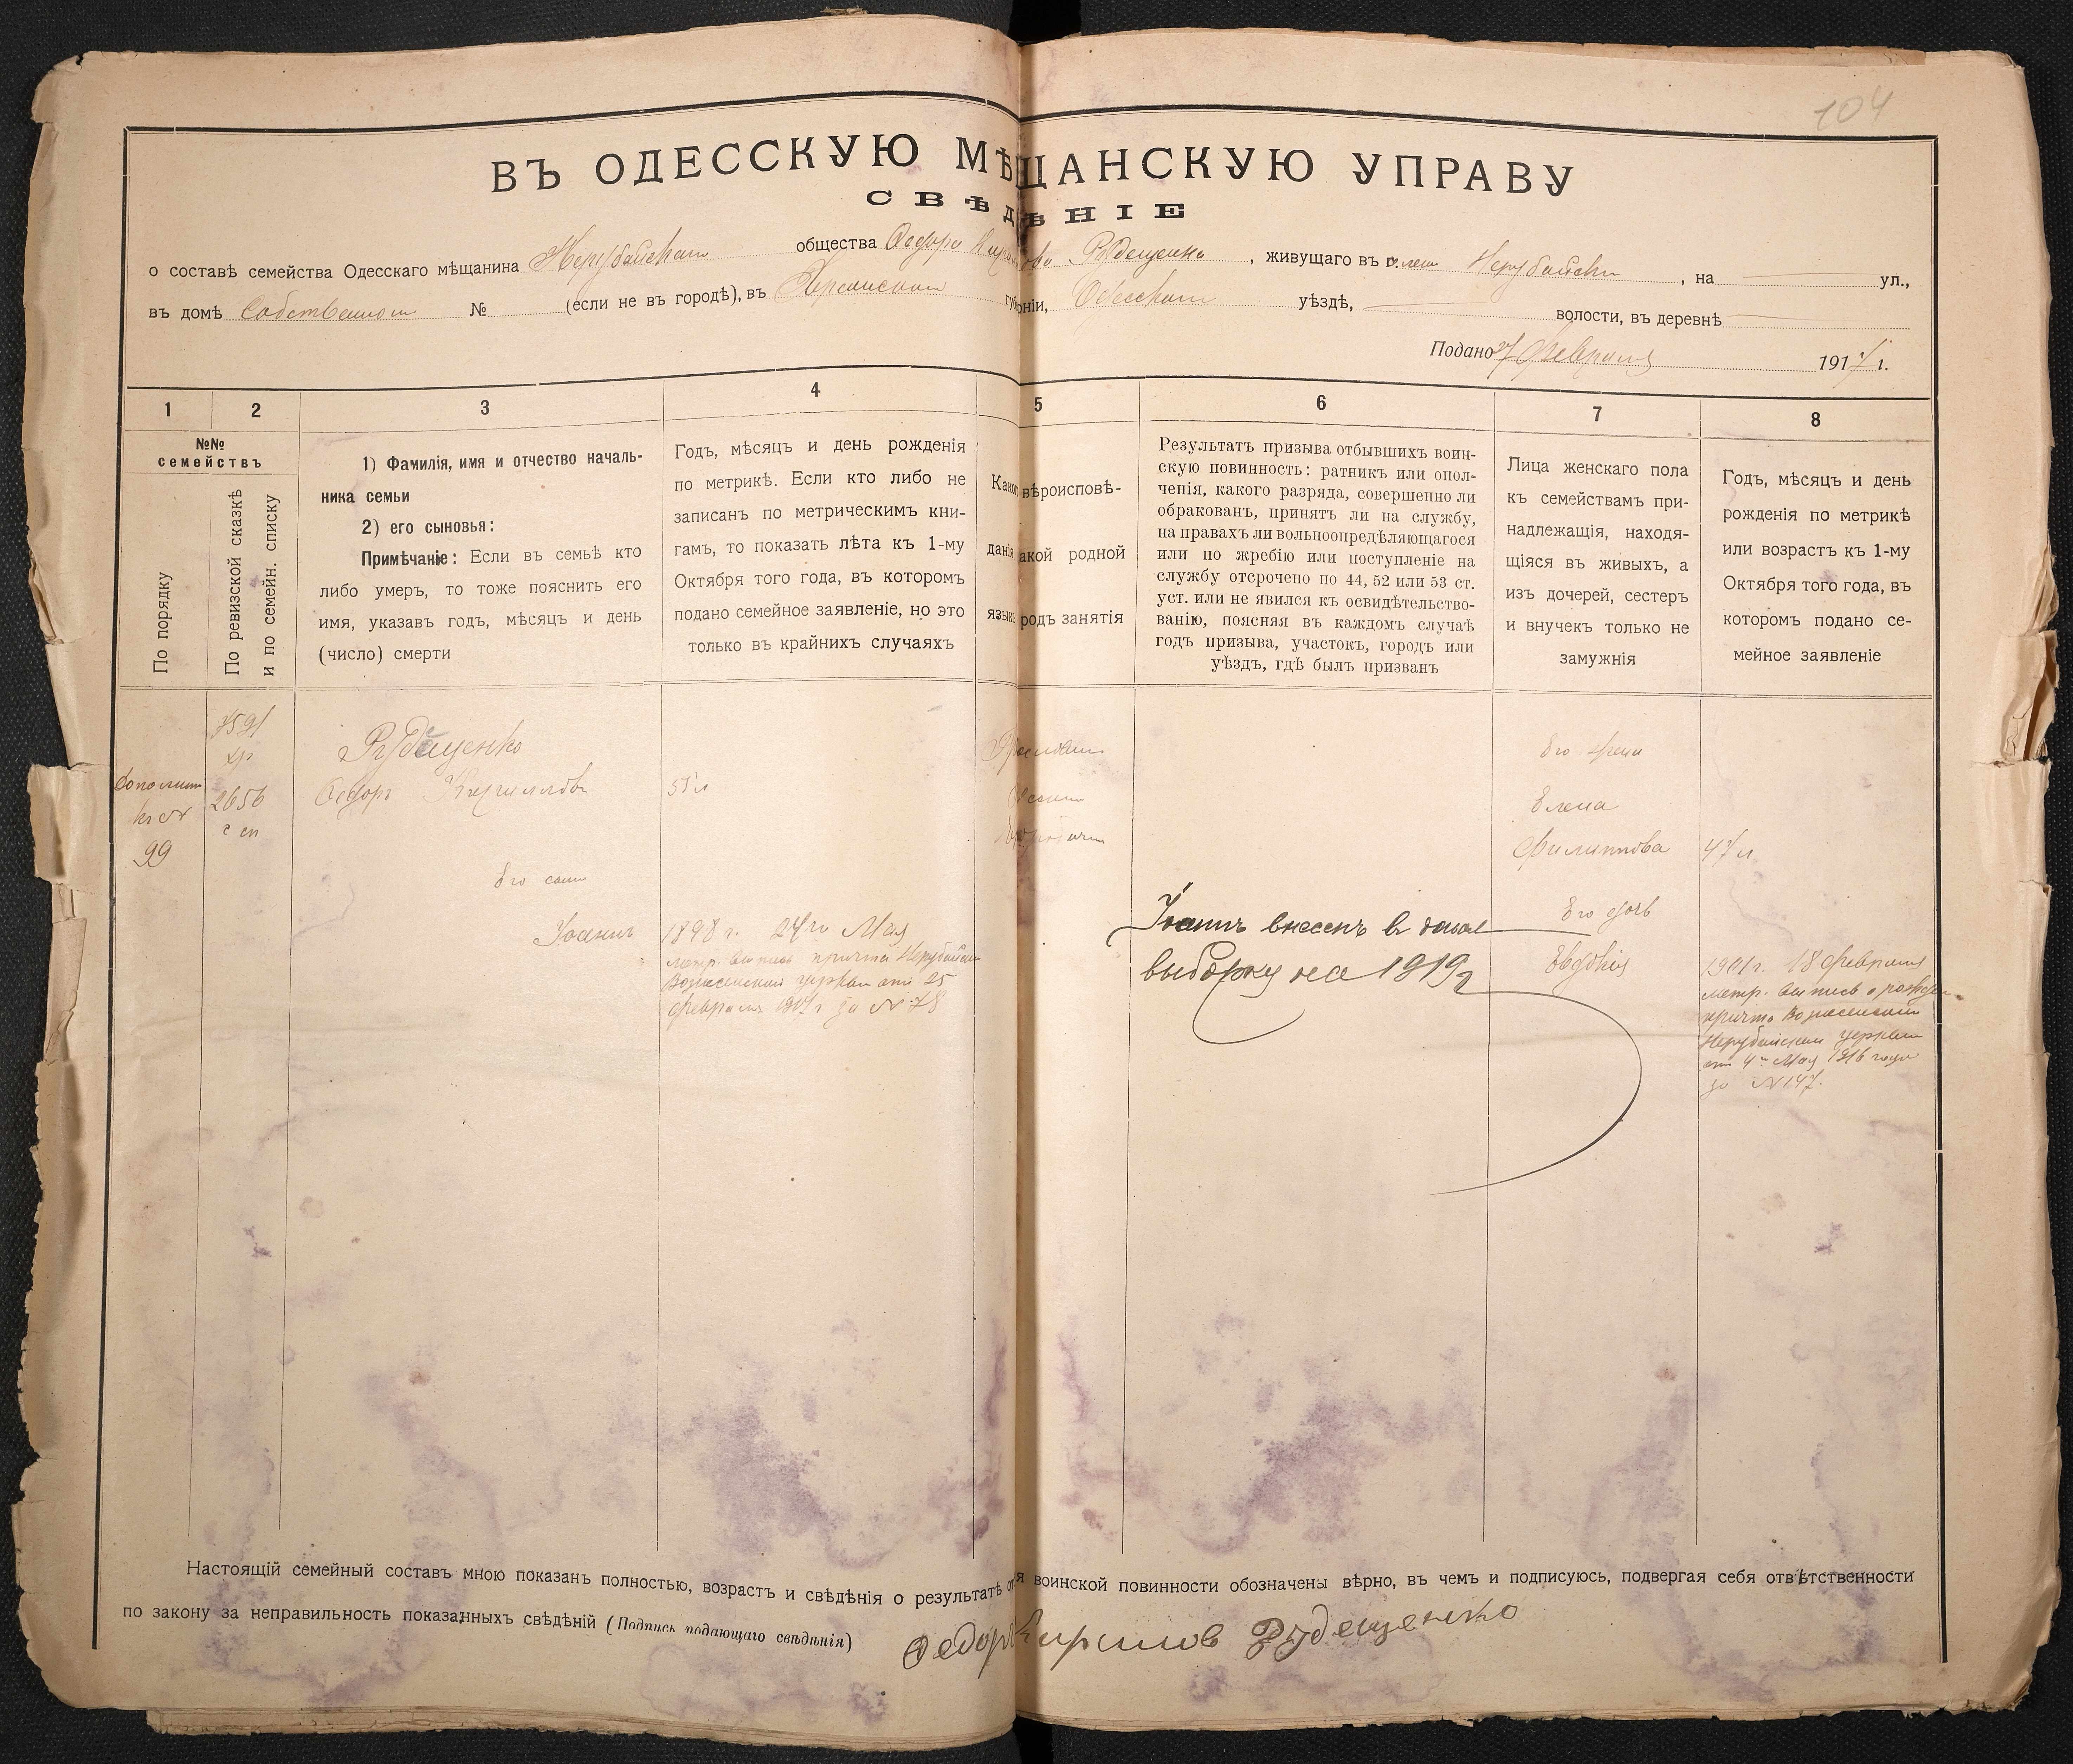 104
ВЪ ОДЕССКУЮ МѢЩАНСКУЮ УПРАВУ
СВѢДѢНІЕ
о составѣ семейства Одесскаго мѣщанина Нерубайскаго общества Ѳедора Кирилова Рудещенко, живущаго въ Нерубайски, на ул.,
въ домѣ Собственном № (если не въ городѣ), въ Херсонской губерніи, Одесскаго уѣздѣ, волости, въ деревнѣ
Подано 7 Февраля 1917 г.
1 2 3 4 5 6 7 8
№№ семействъ
По порядку
По ревизской сказкѣ и по семейн. списку
1) Фамилія, имя и отчество началь-
ника семьи
2) его сыновья:
Примѣчаніе: Если въ семьѣ кто
либо умеръ, то тоже пояснить его
имя, указавъ годъ, мѣсяцъ и день
(число) смерти
Годъ, мѣсяцъ и день рожденія
по метрикѣ. Если кто либо не
записанъ по метрическимъ кни-
гамъ, то показать лѣта къ 1-му
Октября того года, въ которомъ
подано семейное заявленіе, но это
только въ крайнихъ случаяхъ
вѣроисповѣ-
данія, акой родной
языкъ родъ занятія
Результатъ призыва отбывшихъ воин-
скую повинность: ратникъ или опол-
ченія, какого разряда, совершенно ли
обракованъ, принятъ ли на службу,
на правахъ ли вольноопредѣляющагося
или по жребію или поступленіе на
службу отсрочено по 44, 52 или 53 ст.
уст. или не явился къ освидѣтельство-
ванію, поясняя въ каждомъ случаѣ
годъ призыва, участокъ, городъ или
уѣздъ, гдѣ былъ призванъ
Лица женскаго пола
къ семействамъ при-
надлежащія, находя-
щіяся въ живыхъ, а
изъ дочерей, сестеръ
и внучекъ только не
замужнія
Годъ, мѣсяцъ и день
рожденія по метрикѣ
или возрастъ къ 1-му
Октября того года, въ
которомъ подано се-
мейное заявленіе
къ №
99
7591
2656
с сп
Рудещенко
Ѳедоръ Кирилловъ
55 л
Его сынъ
Іоаннъ
1898 г. 24го Мая
метр. выпись причта Нерубайской
Вознесенской церкви отъ 25
февраля г за № 78
Іоаннъ внесенъ въ
выборку на 1919 г
Его жена
Елена
Филиппова
47 л
Его дочь
Евдокія
1901 г. 18 февраля
метр. выпись о рожден
причта Вознесенской
Нерубайской церкви
отъ 4го Мая 1916 года
за № 147.
Настоящій семейный составъ мною показанъ полностью, возрастъ и свѣдѣнія о результатѣ воинской повинности обозначены вѣрно, въ чемъ и подписуюсь, подвергая себя отвѣтственности
по закону за неправильность показанныхъ свѣдѣній (Подпись подающаго свѣдѣнія) Федор Кирилов Рудещенко